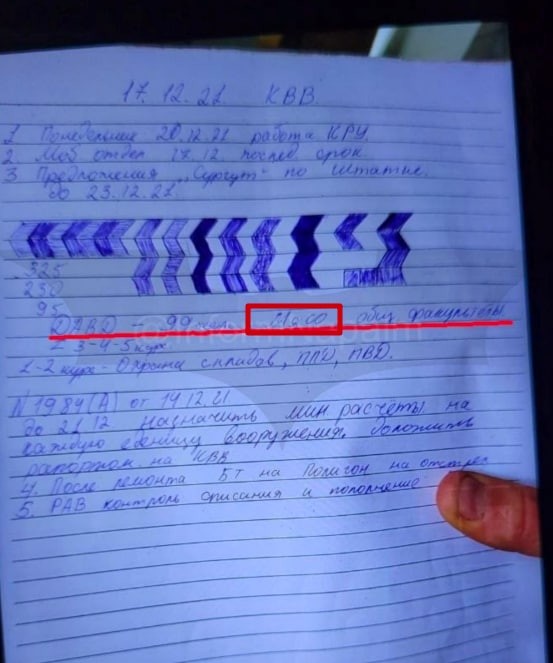 17.12.21 КВВ.
1 Понедельник 20.12.21 работа КРУ.
2. Моб отдел 17.12. послед. срок
3 Предложения "Сургут" по штатке.
до 23.12.21.
325
230
95
- 99 чел. общ. факультеты
2-3-4-5 курс
1-2 курс - Охрана складов, ППД, ПВД.
N 1984(А) от 14.12.21
до 21.12 назначить мин расчеты на
каждую единицу вооружения. Доложить
рапортом на КВВ
4. После ремонта БТ на Полигон на отстрел
5. РАВ контроль описания и пополнение